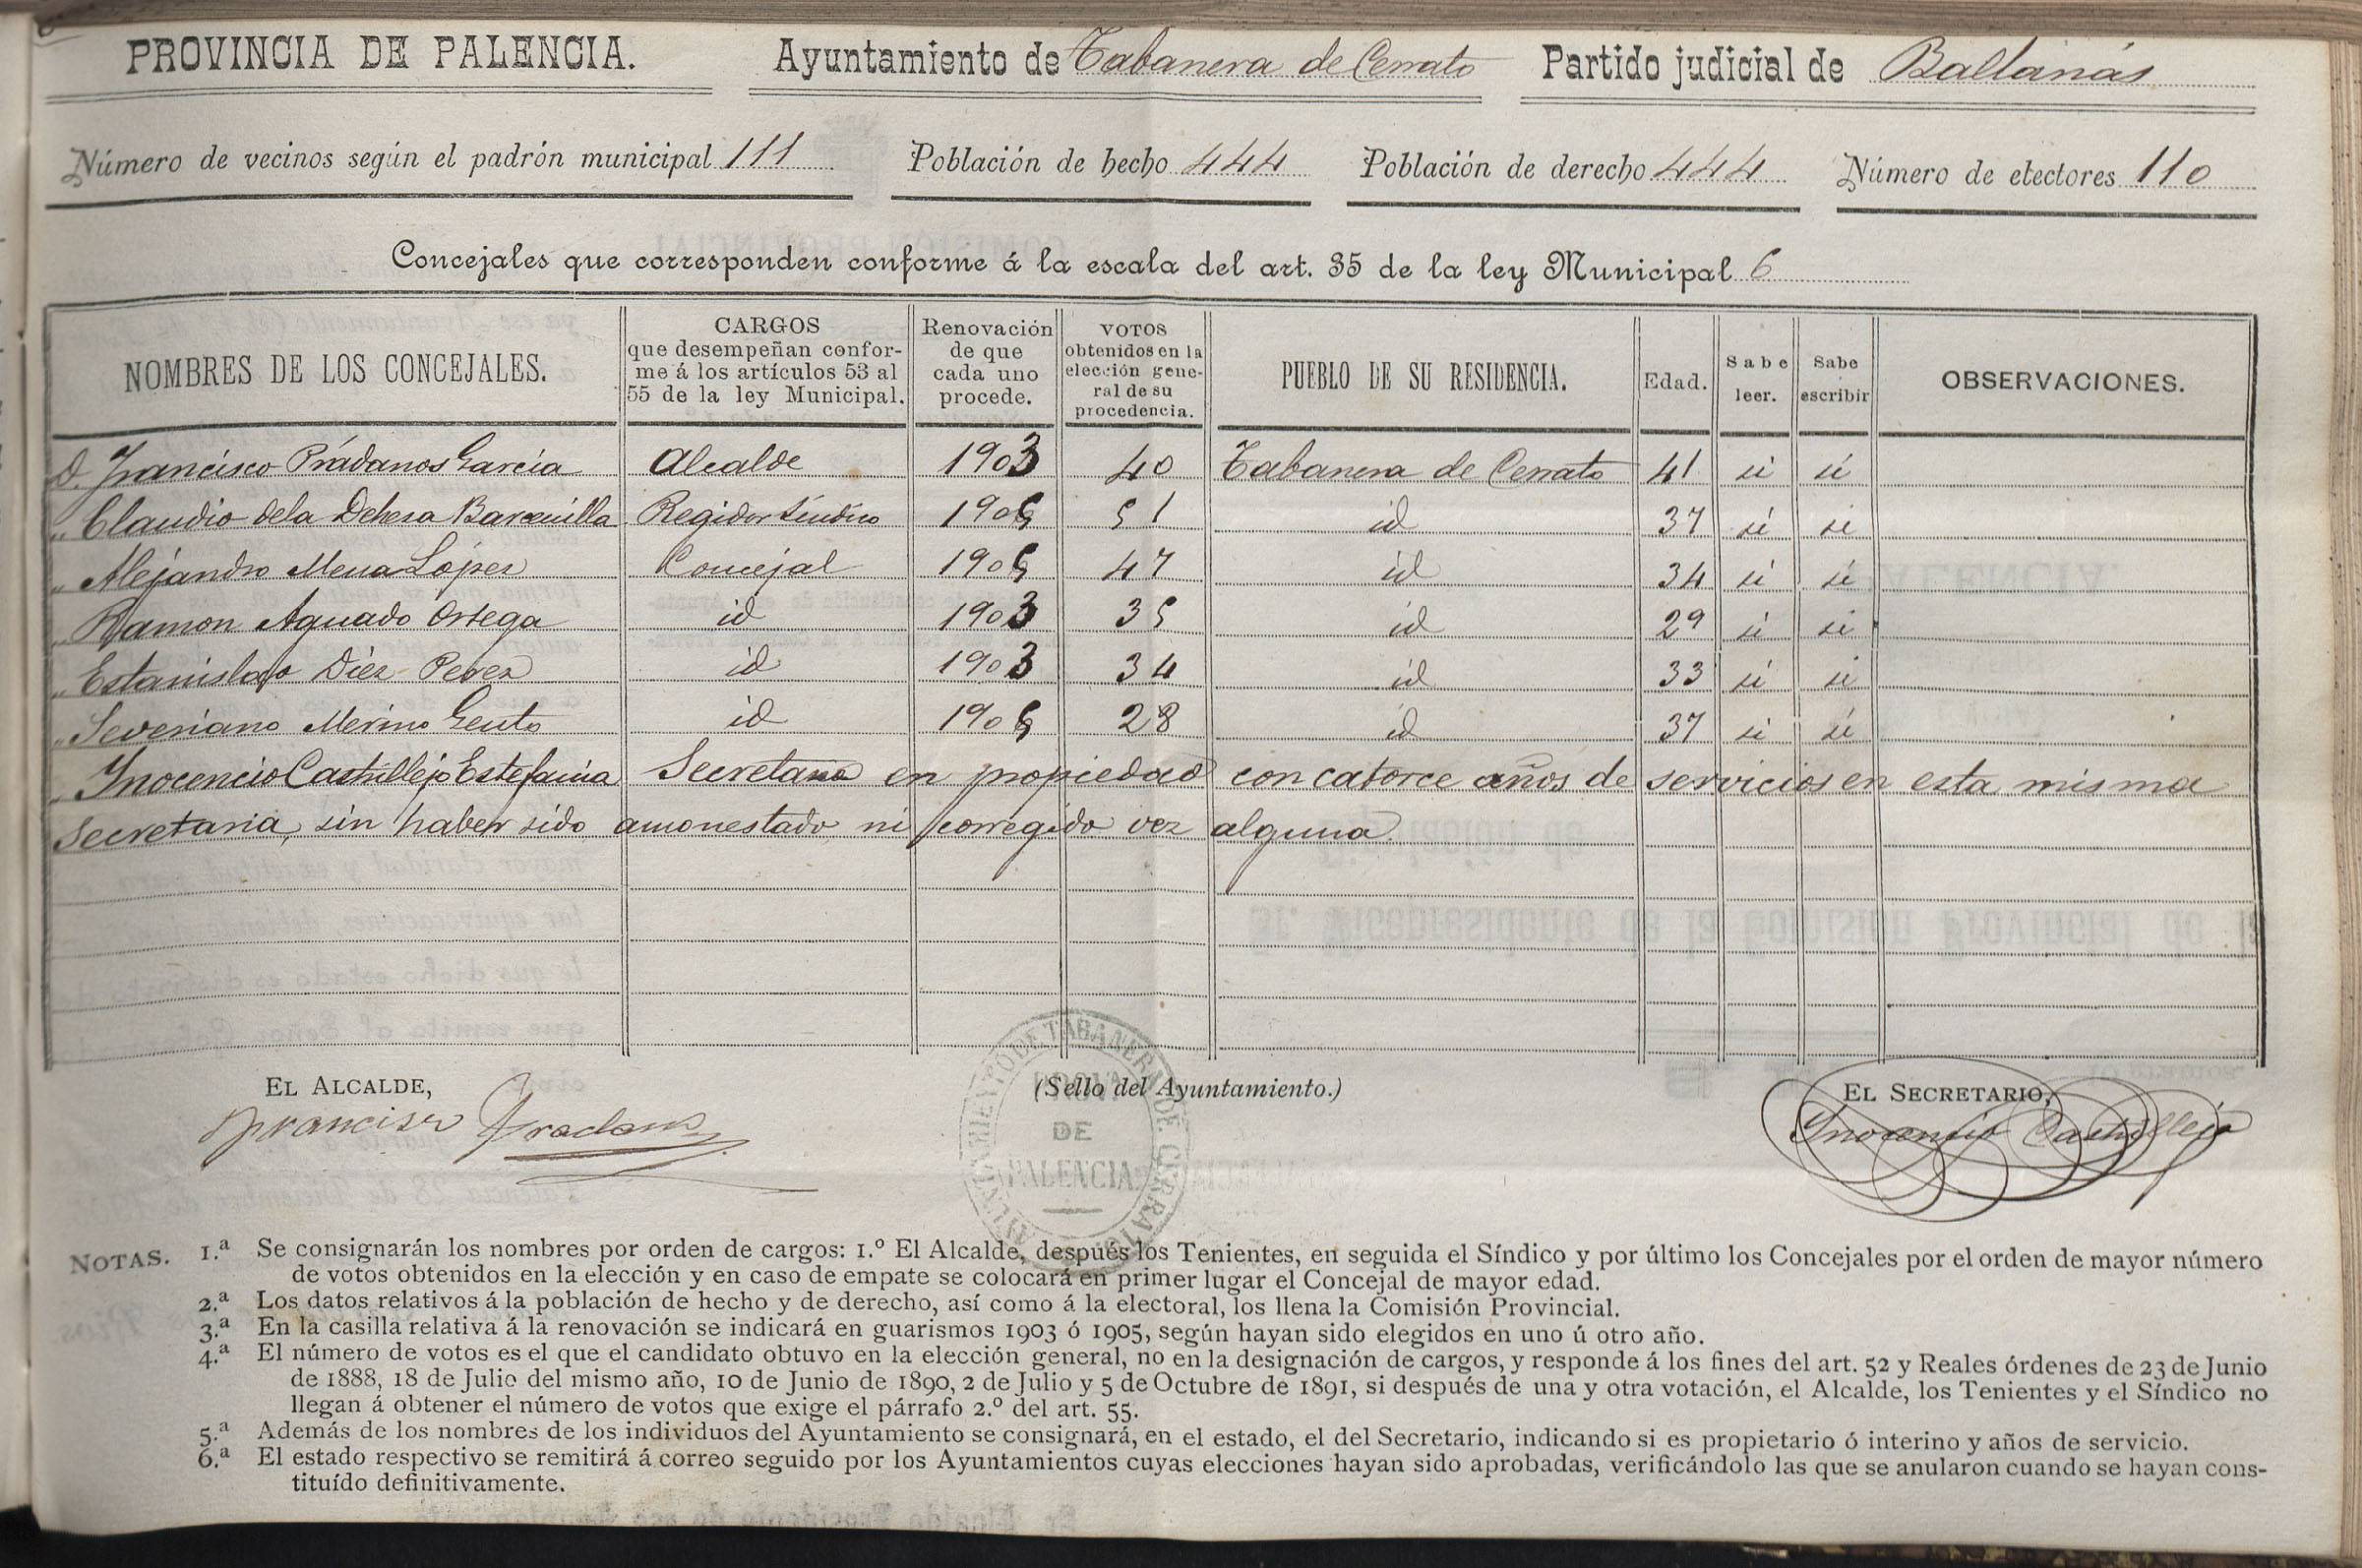 PROVINCIA DE PALENCIA. Ayuntamiento de Tabanera de Cerrato Partido judicial de Baltanás
Número de vecinos según el padrón municipal 111 Población de hecho 444 Población de derecho 444 Número de electores 110
Concejales que corresponden conforme á la escala del art. 35 de la ley Municipal 6
NOMBRES DE LOS CONCEJALES. CARGOS que desempeñan conforme á los artículos 53 al 55 de la ley Municipal. Renovación de que cada uno procede. VOTOS obtenidos en la elección general de su procedencia. PUEBLO DE SU RESIDENCIA. Edad. Sabe leer. Sabe escribir OBSERVACIONES.
D. Francisco Prádanos García Alcalde 1903 40 Tabanera de Cerrato 41 si si
" Claudio de la Dehesa Barcenilla Regidor Síndico 1905 51 id 37 si si
" Alejandro Mena López Concejal 1905 47 id 34 si si
" Ramon Aguado Ortega id 1903 35 id 29 si si
" Estanislao Diez Perez id 1903 34 id 33 si si
" Severiano Merino Gento id 1905 28 id 37 si si
" Inocencio Castrillejo Estefania Secretario en propiedad con catorce años de servicios en esta misma
Secretaria, sin haber sido amonestado ni corregido vez alguna.
EL ALCALDE, (Sello del Ayuntamiento.) EL SECRETARIO,
Francisco Pradanos Inocencio Castrillejo
AYUNTAMIENTO DE TABANERA DE CERRATO
PROVA
DE
PALENCIA
NOTAS. 1.ª Se consignarán los nombres por orden de cargos: 1.º El Alcalde, después los Tenientes, en seguida el Síndico y por último los Concejales por el orden de mayor número
de votos obtenidos en la elección y en caso de empate se colocará en primer lugar el Concejal de mayor edad.
2.ª Los datos relativos á la población de hecho y de derecho, así como á la electoral, los llena la Comisión Provincial.
3.ª En la casilla relativa á la renovación se indicará en guarismos 1903 ó 1905, según hayan sido elegidos en uno ú otro año.
4.ª El número de votos es el que el candidato obtuvo en la elección general, no en la designación de cargos, y responde á los fines del art. 52 y Reales órdenes de 23 de Junio
de 1888, 18 de Julio del mismo año, 10 de Junio de 1890, 2 de Julio y 5 de Octubre de 1891, si después de una y otra votación, el Alcalde, los Tenientes y el Síndico no
llegan á obtener el número de votos que exige el párrafo 2.º del art. 55.
5.ª Además de los nombres de los individuos del Ayuntamiento se consignará, en el estado, el del Secretario, indicando si es propietario ó interino y años de servicio.
6.ª El estado respectivo se remitirá á correo seguido por los Ayuntamientos cuyas elecciones hayan sido aprobadas, verificándolo las que se anularon cuando se hayan cons-
tituído definitivamente.